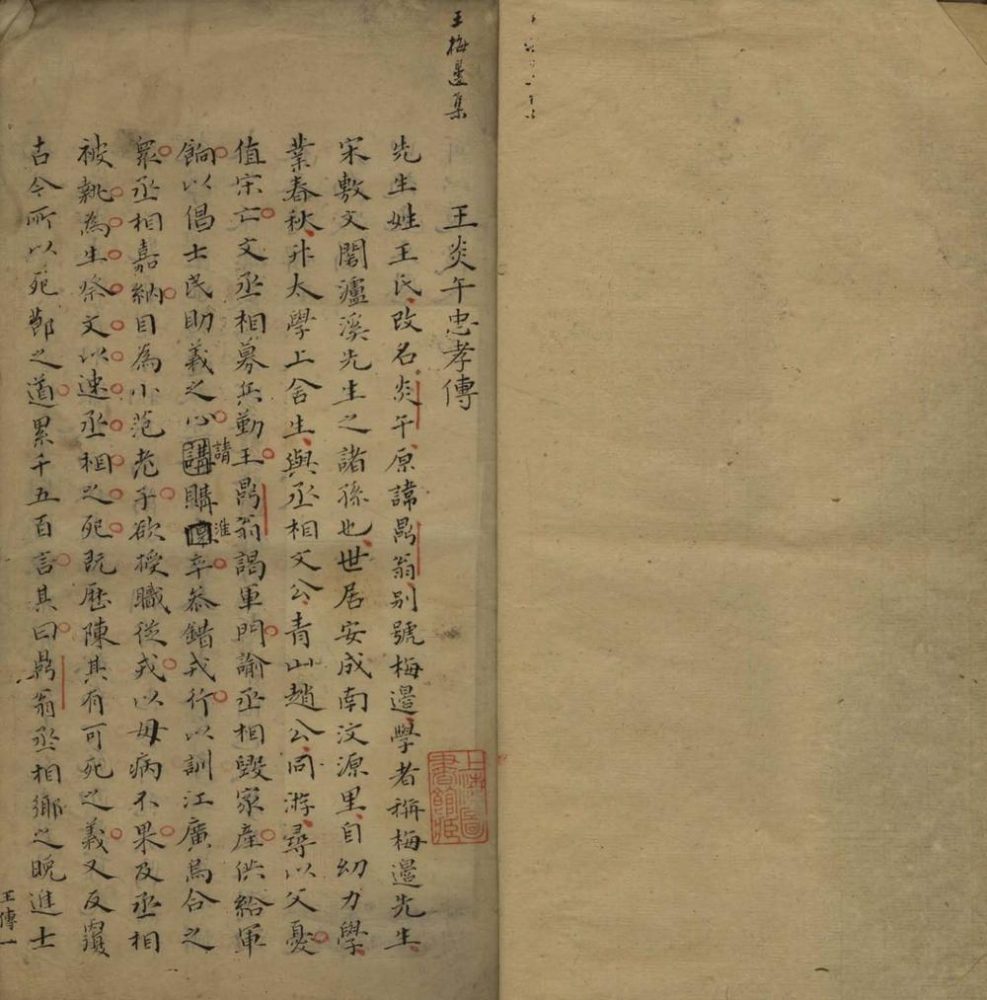 王梅邉集
王炎午忠孝傳
先生姓王氏改名炎午原諱鼎翁別號梅邉學者稱梅邉先生
宋敷文閣瀘溪先生之諸孫也世居安成南汶源里自幼力學
業春秋升太學上舍生與丞相文公青山趙公同游尋以父憂
值宋亡文丞相募兵勤王鼎翁謁軍門諭丞相毀家產供給軍
餉以倡士民助義之心講請購淮卒叅錯戎行以訓江廣烏合之
眾丞相嘉納目為小范老子欲授職從戎以母病不果及丞相
被執為生祭文以速丞相之死既歷陳其有可死之義又反覆
古今所以死節之道累千五百言其曰鼎翁丞相鄉之晚進士
王傳一
上海圖書館藏